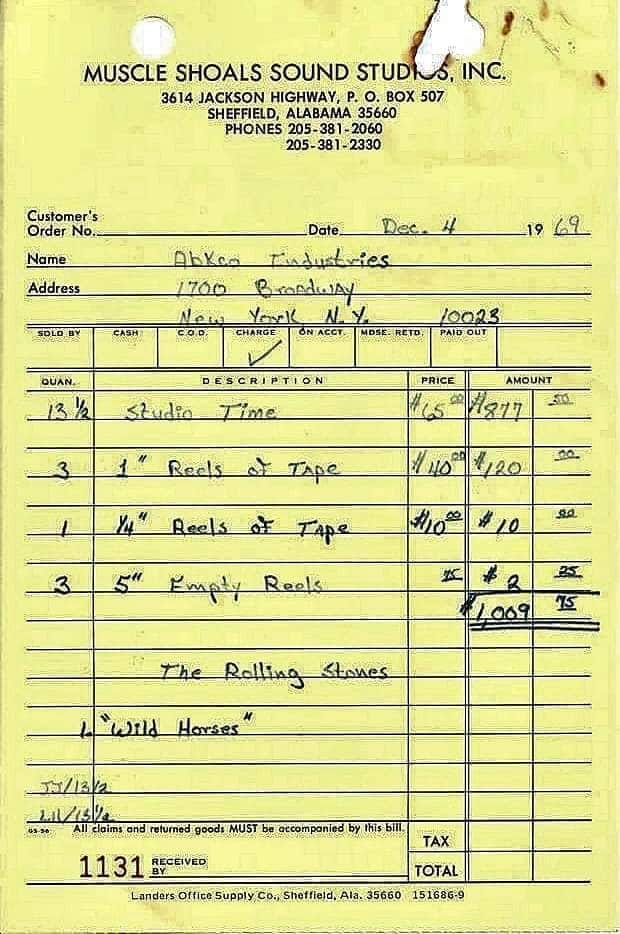 MUSCLE SHOALS SOUND STUDIOS, INC.
3614 JACKSON HIGHWAY, P. O. BOX 507
SHEFFIELD, ALABAMA 35660
PHONES 205-381-2060
205-381-2330
Customer's
Order No. Date Dec. 4 19 69
Name Abkco Industries
Address 1700 Broadway
New York N. Y. 10023
SOLD BY CASH C.O.D. CHARGE ON ACCT. MDSE. RETD. PAID OUT
✓
QUAN. DESCRIPTION PRICE AMOUNT
13 ½ Studio Time $65 00 $877 50
3 1" Reels of Tape $40 00 $120 00
1 ¼" Reels of Tape $10 00 $10 00
3 5" Empty Reels 75 $2 25
$1,009 75
The Rolling Stones
1. "Wild Horses"
JJ/13½
/13½
GS-36 All claims and returned goods MUST be accompanied by this bill.
TAX
1131 RECEIVED BY TOTAL
Landers Office Supply Co., Sheffield, Ala. 35660 151686-9